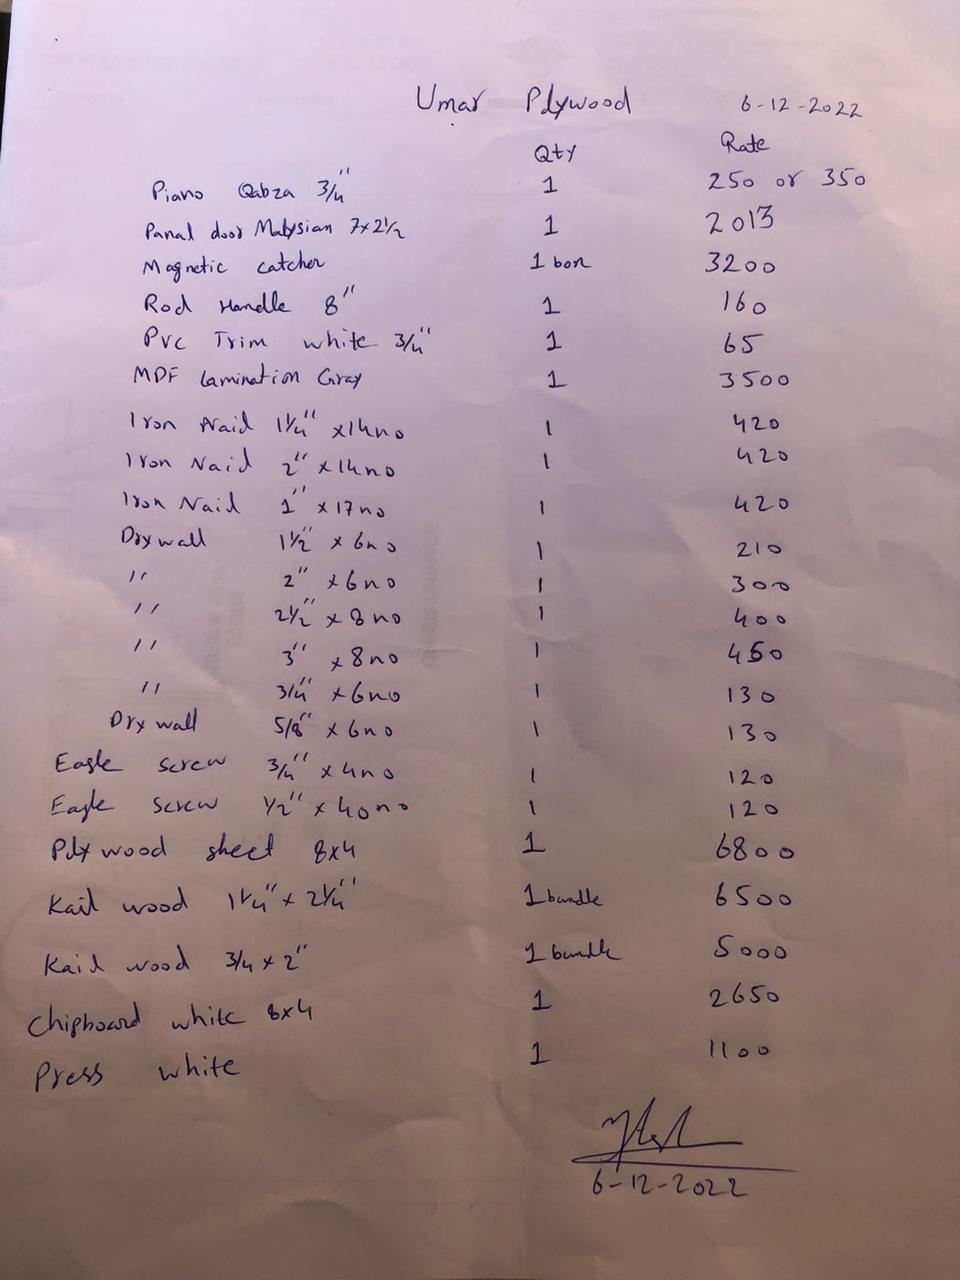 Umar Plywood 6-12-2022
Qty Rate
Piano Qabza 3/4" 1 250 or 350
Panal door Malysian 7x2½ 1 2013
Magnetic catcher 1 box 3200
Rod Handle 8" 1 160
PVC Trim white 3/4" 1 65
MDF Lamination Gray 1 3500
Iron Nail 1¼" x14no 1 420
Iron Nail 2" x14no 1 420
Iron Nail 1" x17no 1 420
Dry wall 1½" x 6no 1 210
" 2" x6no 1 300
" 2½" x 8no 1 400
" 3" x8no 1 450
" 3/4" x6no 1 130
Dry wall 5/8" x 6no 1 130
Eagle screw 3/4" x 4no 1 120
Eagle screw 1/2" x 40no 1 120
Ply wood sheet 8x4 1 6800
Kail wood 1¼" x 2¼" 1 bundle 6500
Kail wood 3/4 x 2" 1 bundle 5000
Chipboard white 8x4 1 2650
Press white 1 1100
6-12-2022